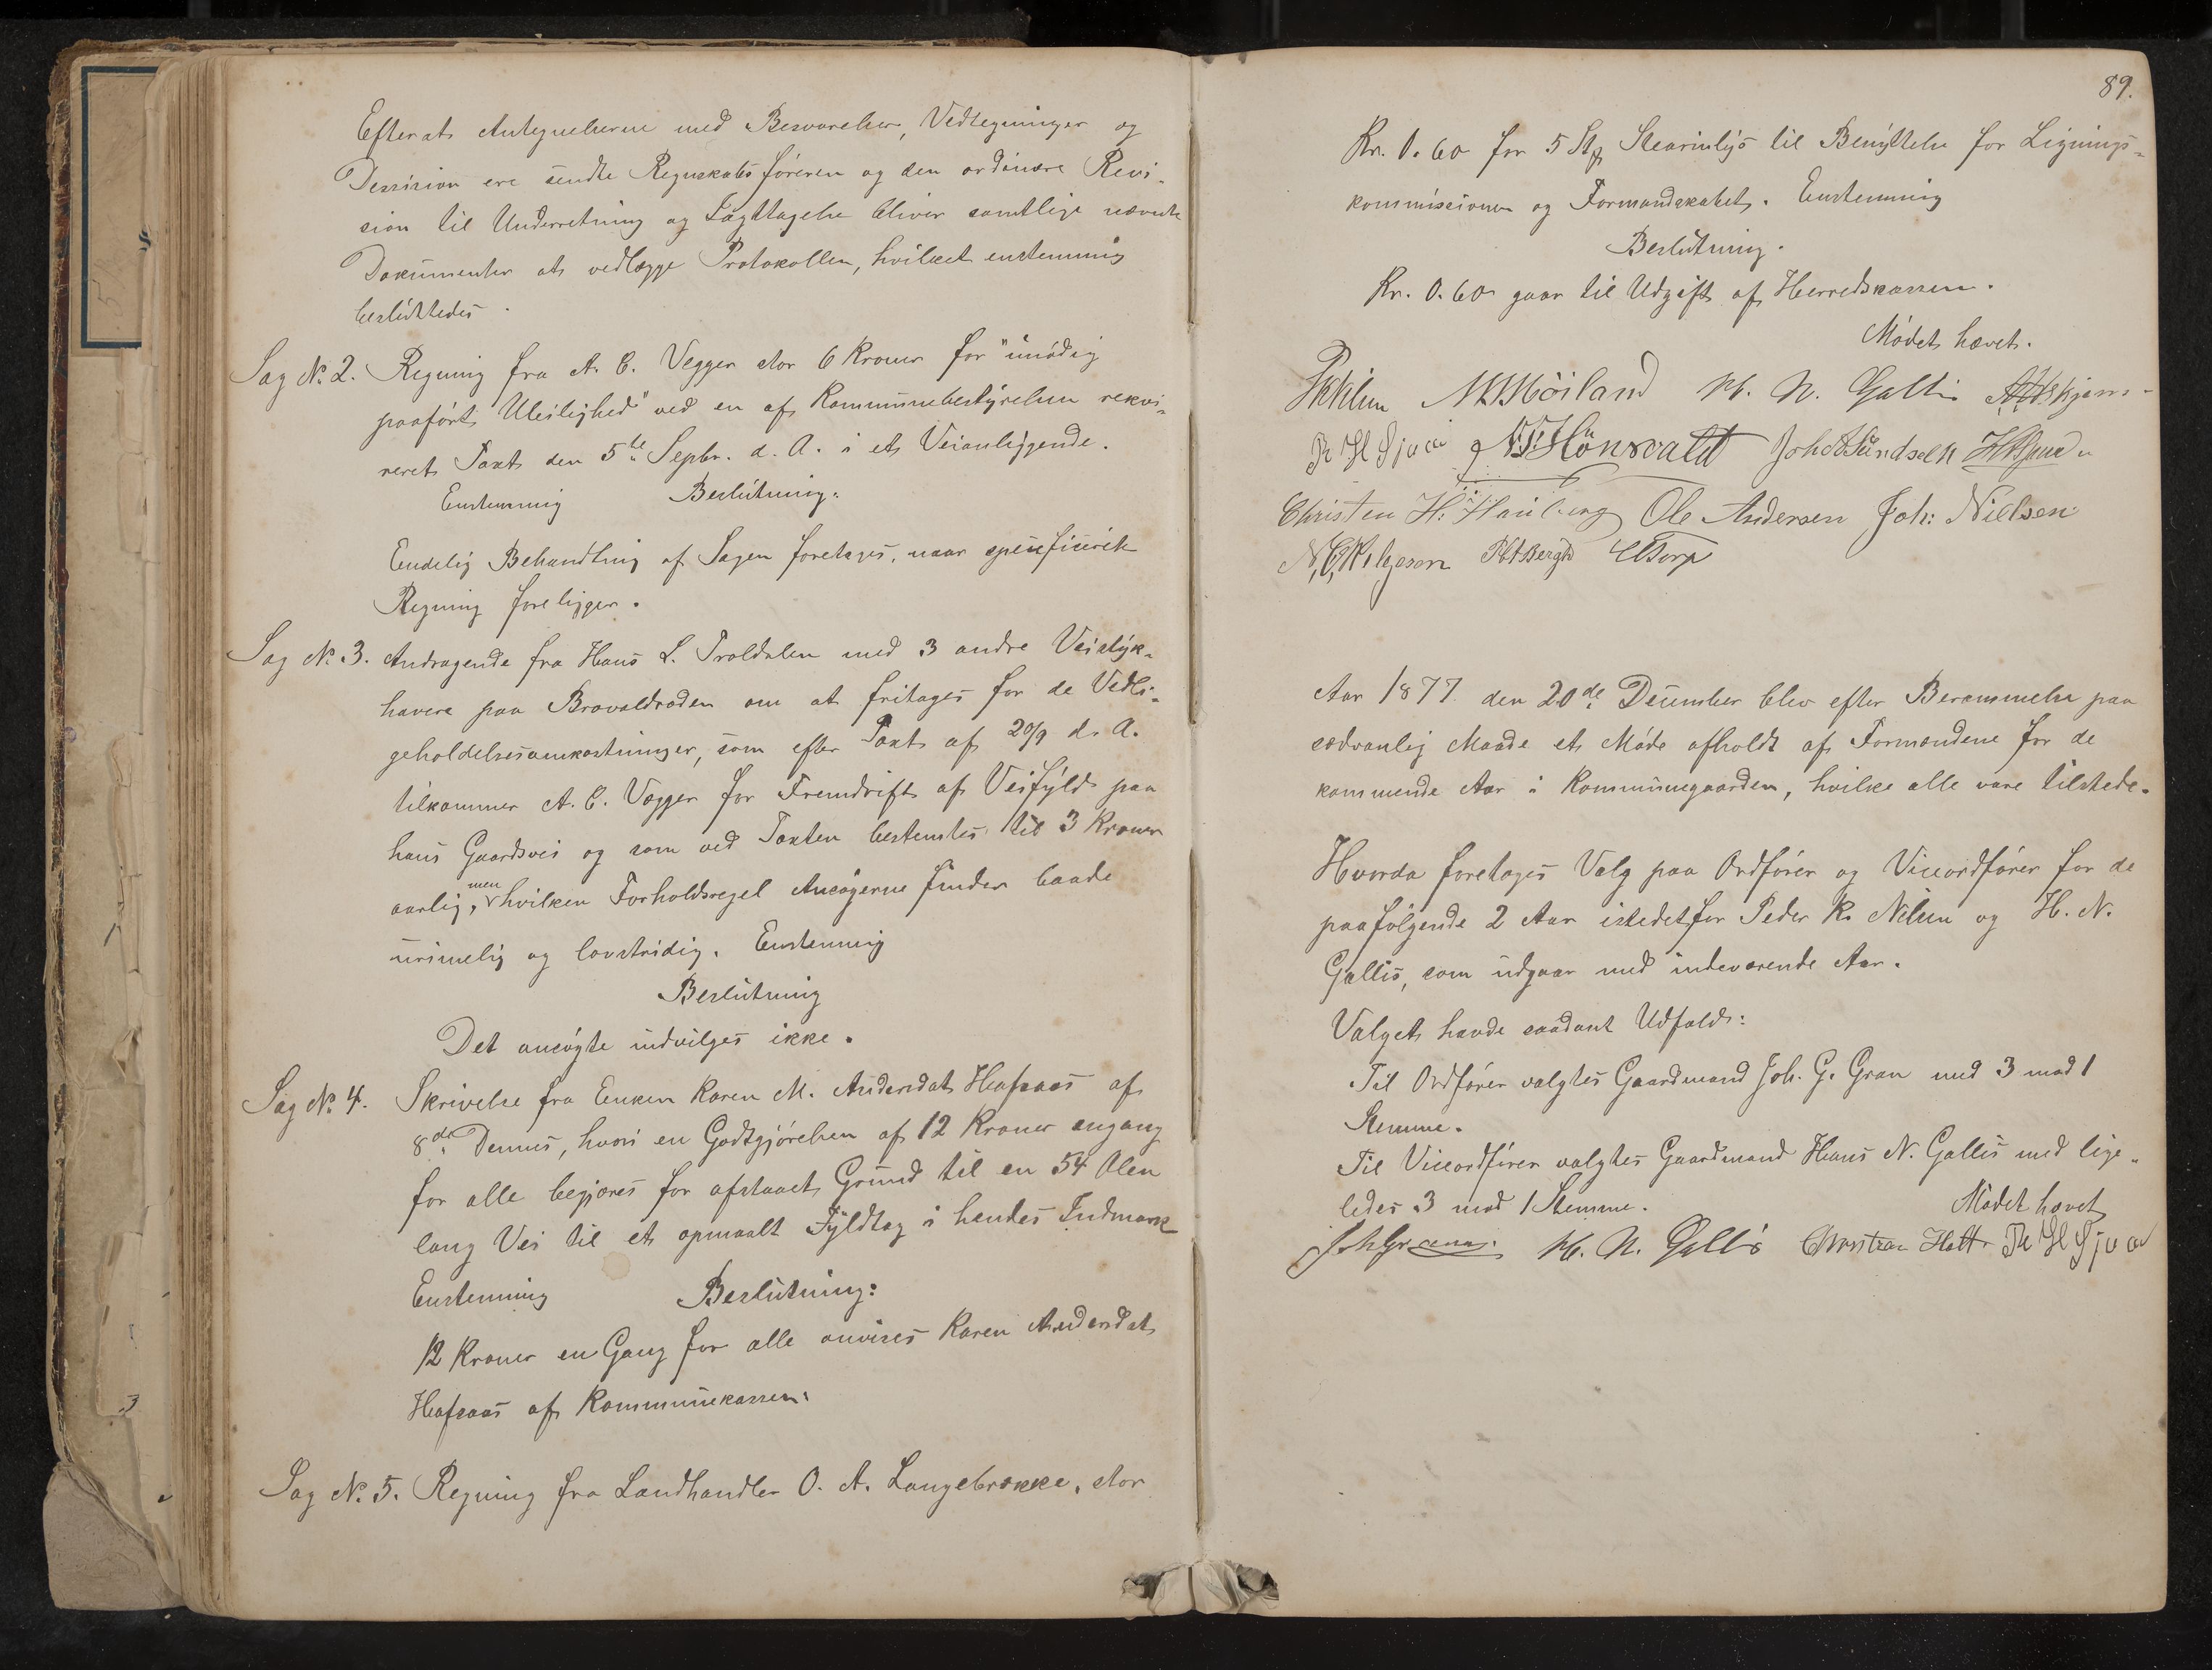 Efterat Antegnelserne med Besvarelser, Vedtegninger og
Dessision ere sendte Regnskabsføreren og den ordinære Revi-
sion til Underretning og Iagttagelse bliver samtlige nævnte
Dokumenter at vedlægge Protokollen, hvilket enstemmig
besluttedes.
Sag No. 2. Regning fra A. C. Vegger stor 6 Kroner for "unødig
paaført Uleilighed" ved en af Kommunebestyrelsen rekvi-
reret Taxt den 5te Septbr. d. A. i et Veianliggende.
Enstemmig Beslutning:
Endelig Behandling af Sagen foretages, naar spesifiserit
Regning foreligger.
Sag No. 3. Andragende fra Hans L. Troldalen med 3 andre Veistyk-
havere paa Bravaldroden om at fritages for de Vedli-
geholdelsesomkostninger, som efter Taxt af 20/9 d. A.
tilkommer A. C. Vogger for Fremdrift af Veifyld paa
hans Gaardsvei og som ved Taxten bestemtes til 3 Kroner
aarlig, men hvilken Forholdsregel Ansøgerne finder baade
urimelig og lovstridig. Enstemmig
Beslutning
Det ansøgte indvilges ikke.
Sag No. 4. Skrivelse fra Enken Karen M. Andersdat. Hafsaas af
8de Dennes, hvori en Godtgjørelsen af 12 Kroner engang
for alle begjæres for afstaaet Grund til en 54 Alen
lang Vei til et opmaalt Fyldtag i hendes Indmark
Enstemmig Beslutning:
12 Kroner en Gang for alle anvises Karen Andersdat.
Hafsaas af Kommunekassen.
Sag No. 5. Regning fra Landhandler O. A. Langebrække, stor
89.
Kr. 0.60 for 5 Stk Stearinlys til Benyttelse for Lignings-
kommissionen og Formandskabet. Enstemmig
Beslutning.
Kr. 0.60 gaar til Udgift af Herredskassen.
Mødet hævet.
Møiland H. N. Gallis
Hønsvaldt
Christen H. Hauberg Ole Andersen Joh: Nielsen
Torp
Aar 1877 den 20de December blev efter Berammelse paa
sædvanlig Maade et Møde afholdt af Formændene for de
kommende Aar i Kommunegaarden, hvilke alle vare tilstede.
Hvorda foretages Valg paa Ordfører og Viceordfører for de
paafølgende 2 Aar istedetfor Peder K. Nilsen og H. N.
Gallis, som udgaar med indeværende Aar.
Valget havde saadant Udfald:
Til Ordfører valgtes Gaardmand Joh. G. Gran med 3 mod 1
Stemme.
Til Viceordfører valgtes Gaardmand Hans N. Gallis med lige-
ledes 3 mod 1 Stemme. Mødet hævet
H. N. Gallis